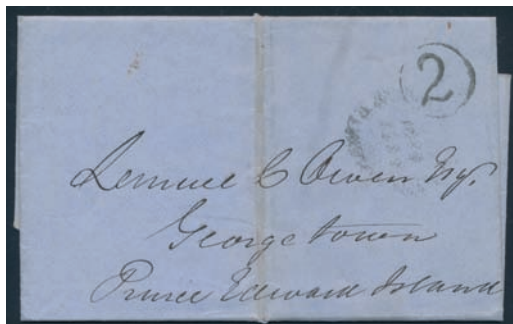 2
Lemuel C Owen Esq.
Georgetown
Prince Edward Island